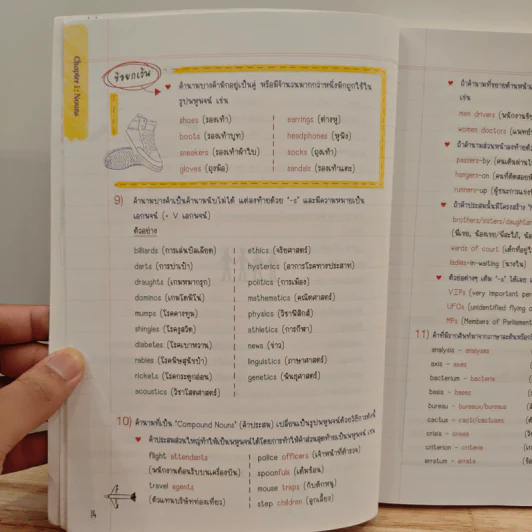 Chapter 1: Nouns
ข้อยกเว้น
คำนามบางคำมักอยู่เป็นคู่ หรือมีจำนวนมากกว่าหนึ่งมักถูกใช้ใน
รูปพหูพจน์ เช่น
shoes (รองเท้า) earrings (ต่างหู)
boots (รองเท้าบูท) headphones (หูฟัง)
sneakers (รองเท้าผ้าใบ) socks (ถุงเท้า)
gloves (ถุงมือ) sandals (รองเท้าแตะ)
9) คำนามบางคำเป็นคำนามนับไม่ได้ แต่ลงท้ายด้วย "-s" และมีความหมายเป็น
เอกพจน์ (+ V เอกพจน์)
ตัวอย่าง
billiards (การเล่นบิลเลียด) ethics (จริยศาสตร์)
darts (การปาเป้า) hysterics (อาการโรคทางประสาท)
draughts (เกมหมากรุก) politics (การเมือง)
dominos (เกมโดมิโน) mathematics (คณิตศาสตร์)
mumps (โรคคางทูม) physics (วิชาฟิสิกส์)
shingles (โรคงูสวัด) athletics (การกีฬา)
diabetes (โรคเบาหวาน) news (ข่าว)
rabies (โรคพิษสุนัขบ้า) linguistics (ภาษาศาสตร์)
rickets (โรคกระดูกอ่อน) genetics (พันธุศาสตร์)
acoustics (วิชาโสตศาสตร์)
10) คำนามที่เป็น "Compound Nouns" (คำประสม) เปลี่ยนเป็นรูปพหูพจน์ด้วยวิธีการดังนี้
คำประสมส่วนใหญ่ทำให้เป็นพหูพจน์ได้โดยการทำให้คำส่วนสุดท้ายเป็นพหูพจน์ เช่น
flight attendants police officers (เจ้าหน้าที่ตำรวจ)
(พนักงานต้อนรับบนเครื่องบิน) spoonfuls (เต็มช้อน)
travel agents mouse traps (กับดักหนู)
(ตัวแทนบริษัทท่องเที่ยว) step children (ลูกเลี้ยง)
14
ถ้าคำนามที่ขยายด้านหน้า
เช่น
men drivers (พนักงานขับ
women doctors (แพทย์
ถ้าคำนามส่วนหน้าลงท้ายด้ว
passers-by (คนเดินผ่านไป
hangers-on (คนที่ติดสอยห้
runners-up (ผู้ชนะการแข่ง
ถ้าคำประสมนั้นมีโครงสร้าง "N
brothers/sisters/daughter
wards of court (เด็กที่อยู่ใ
ladies-in-waiting (นางใน)
ตัวย่อต่างๆ เติม "-s" ได้เลย เ
VIPs (very important per
UFOs (unidentified flying o
MPs (Members of Parliament
11) คำที่มีรากศัพท์มาจากภาษาละตินหรือกรี
analysis - analyses
axis - axes
bacterium - bacteria
basis - bases
bureau - bureaux/bureaus
cactus - cacti/cactuses
crisis - crises
criterion - criteria
erratum - errata